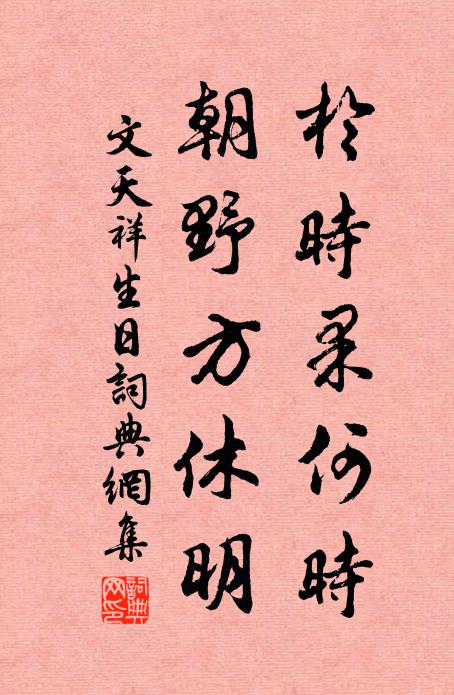 於時果何時
朝野方休明
文天祥生日詞典網集
詞典
网印